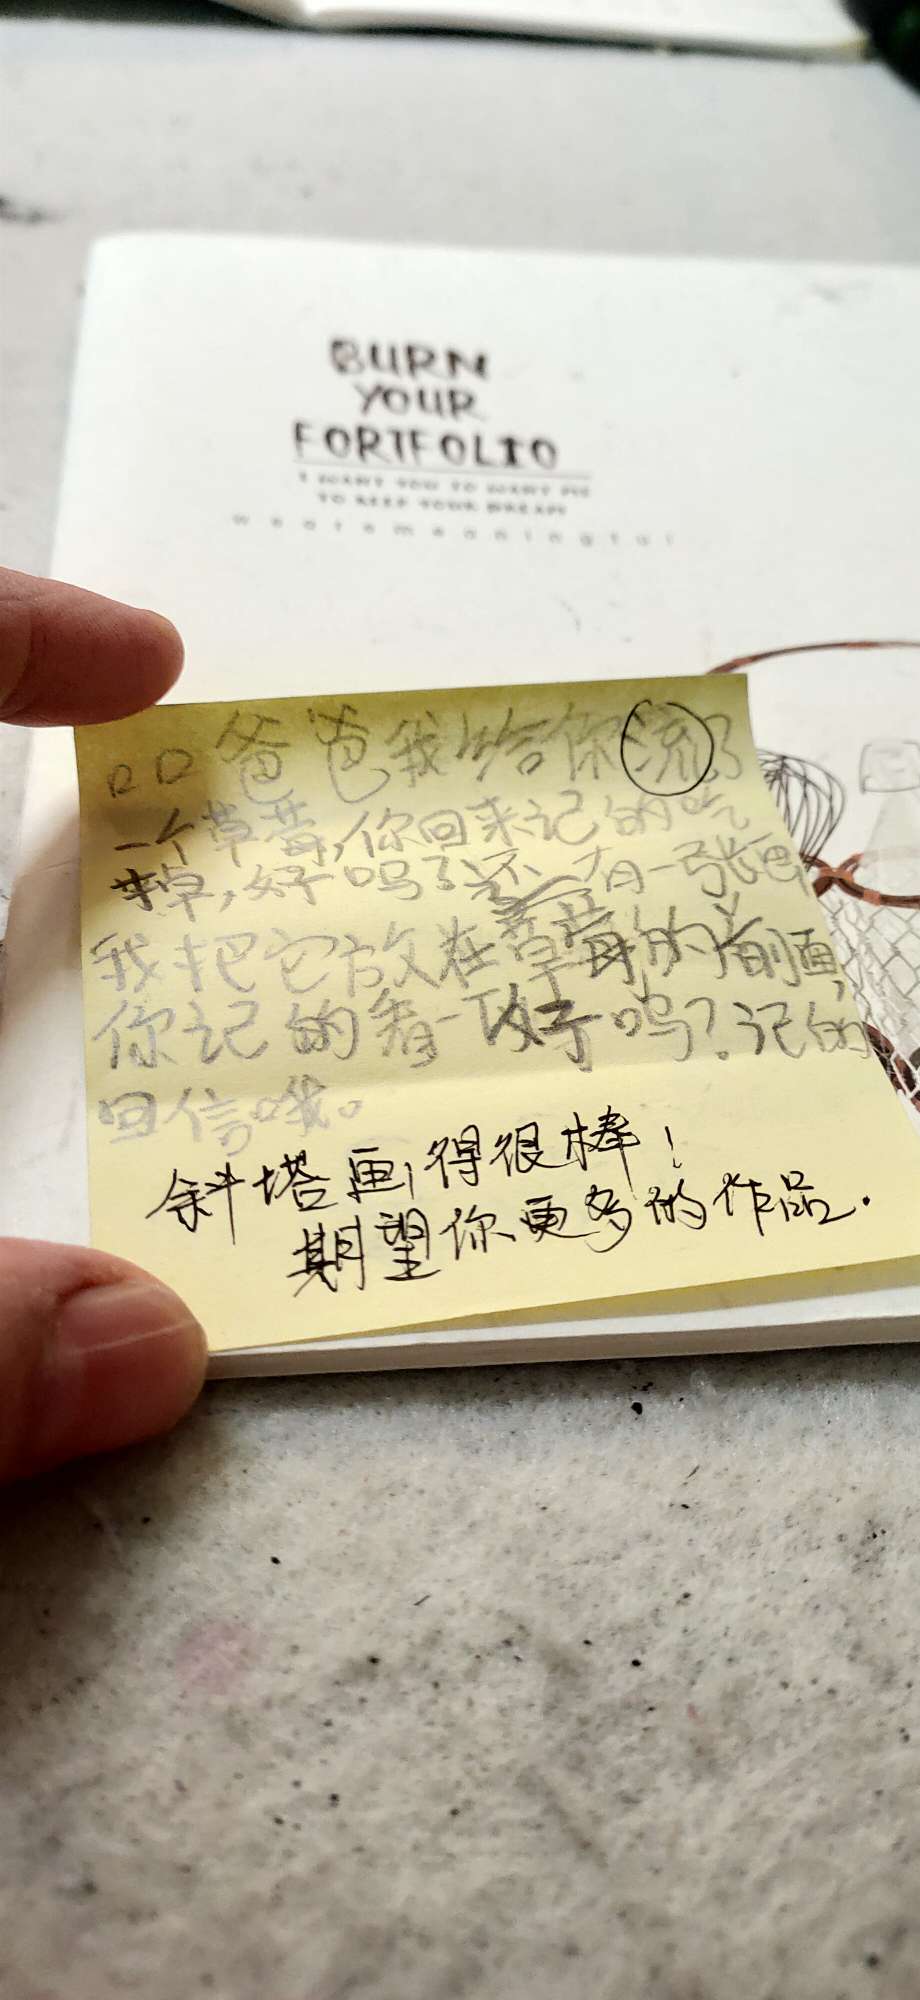 BURN
YOUR
FORTFOLIO
I WANT YOU TO WANT ME
TO KEEP YOUR DREAM
爸爸我给你流了
一个草莓,你回来记的吃
掉,好吗?还有一张画
我把它放在草莓的前面,
你记的看一下好吗?记的
回信哦。
斜塔画得很棒!
期望你更多的作品.